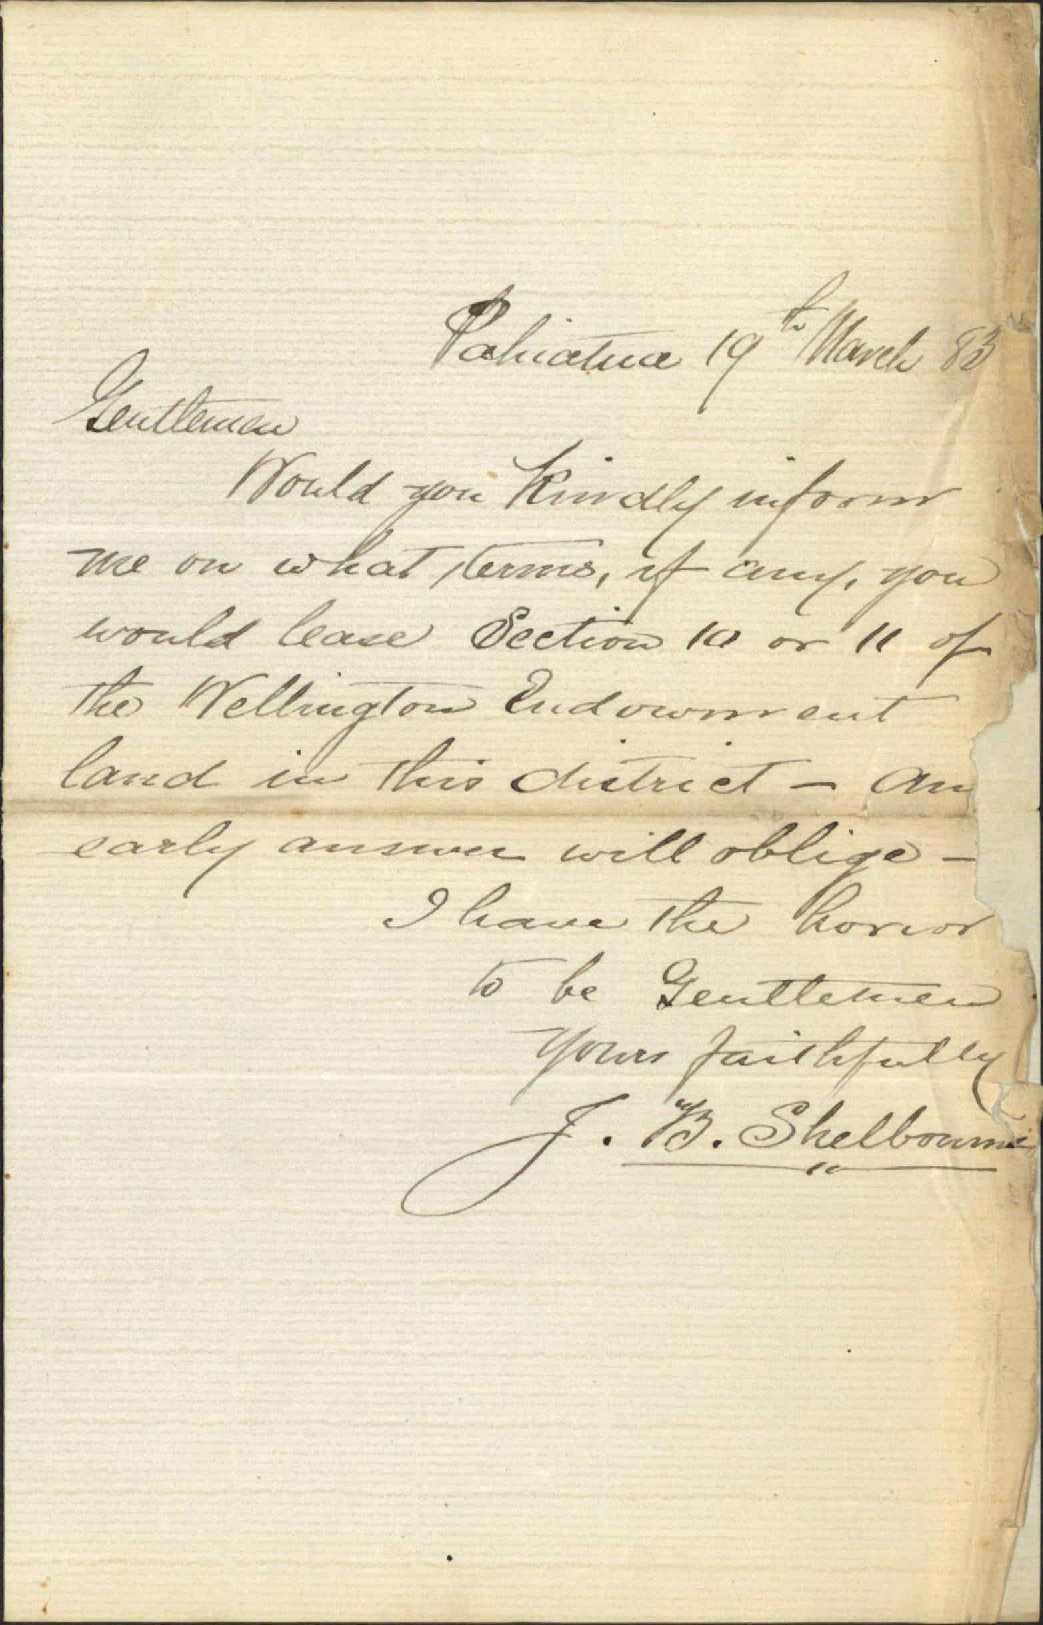 Pahiatua 19th March 83
Gentlemen
Would you Kindly inform
me on what terms, if any, you
would lease Section 10 or 11 of
the Wellington Endowment
land in this district — An
early answer will oblige —
I have the honor
to be Gentlemen
Yours faithfully
J. B. Shelbourne